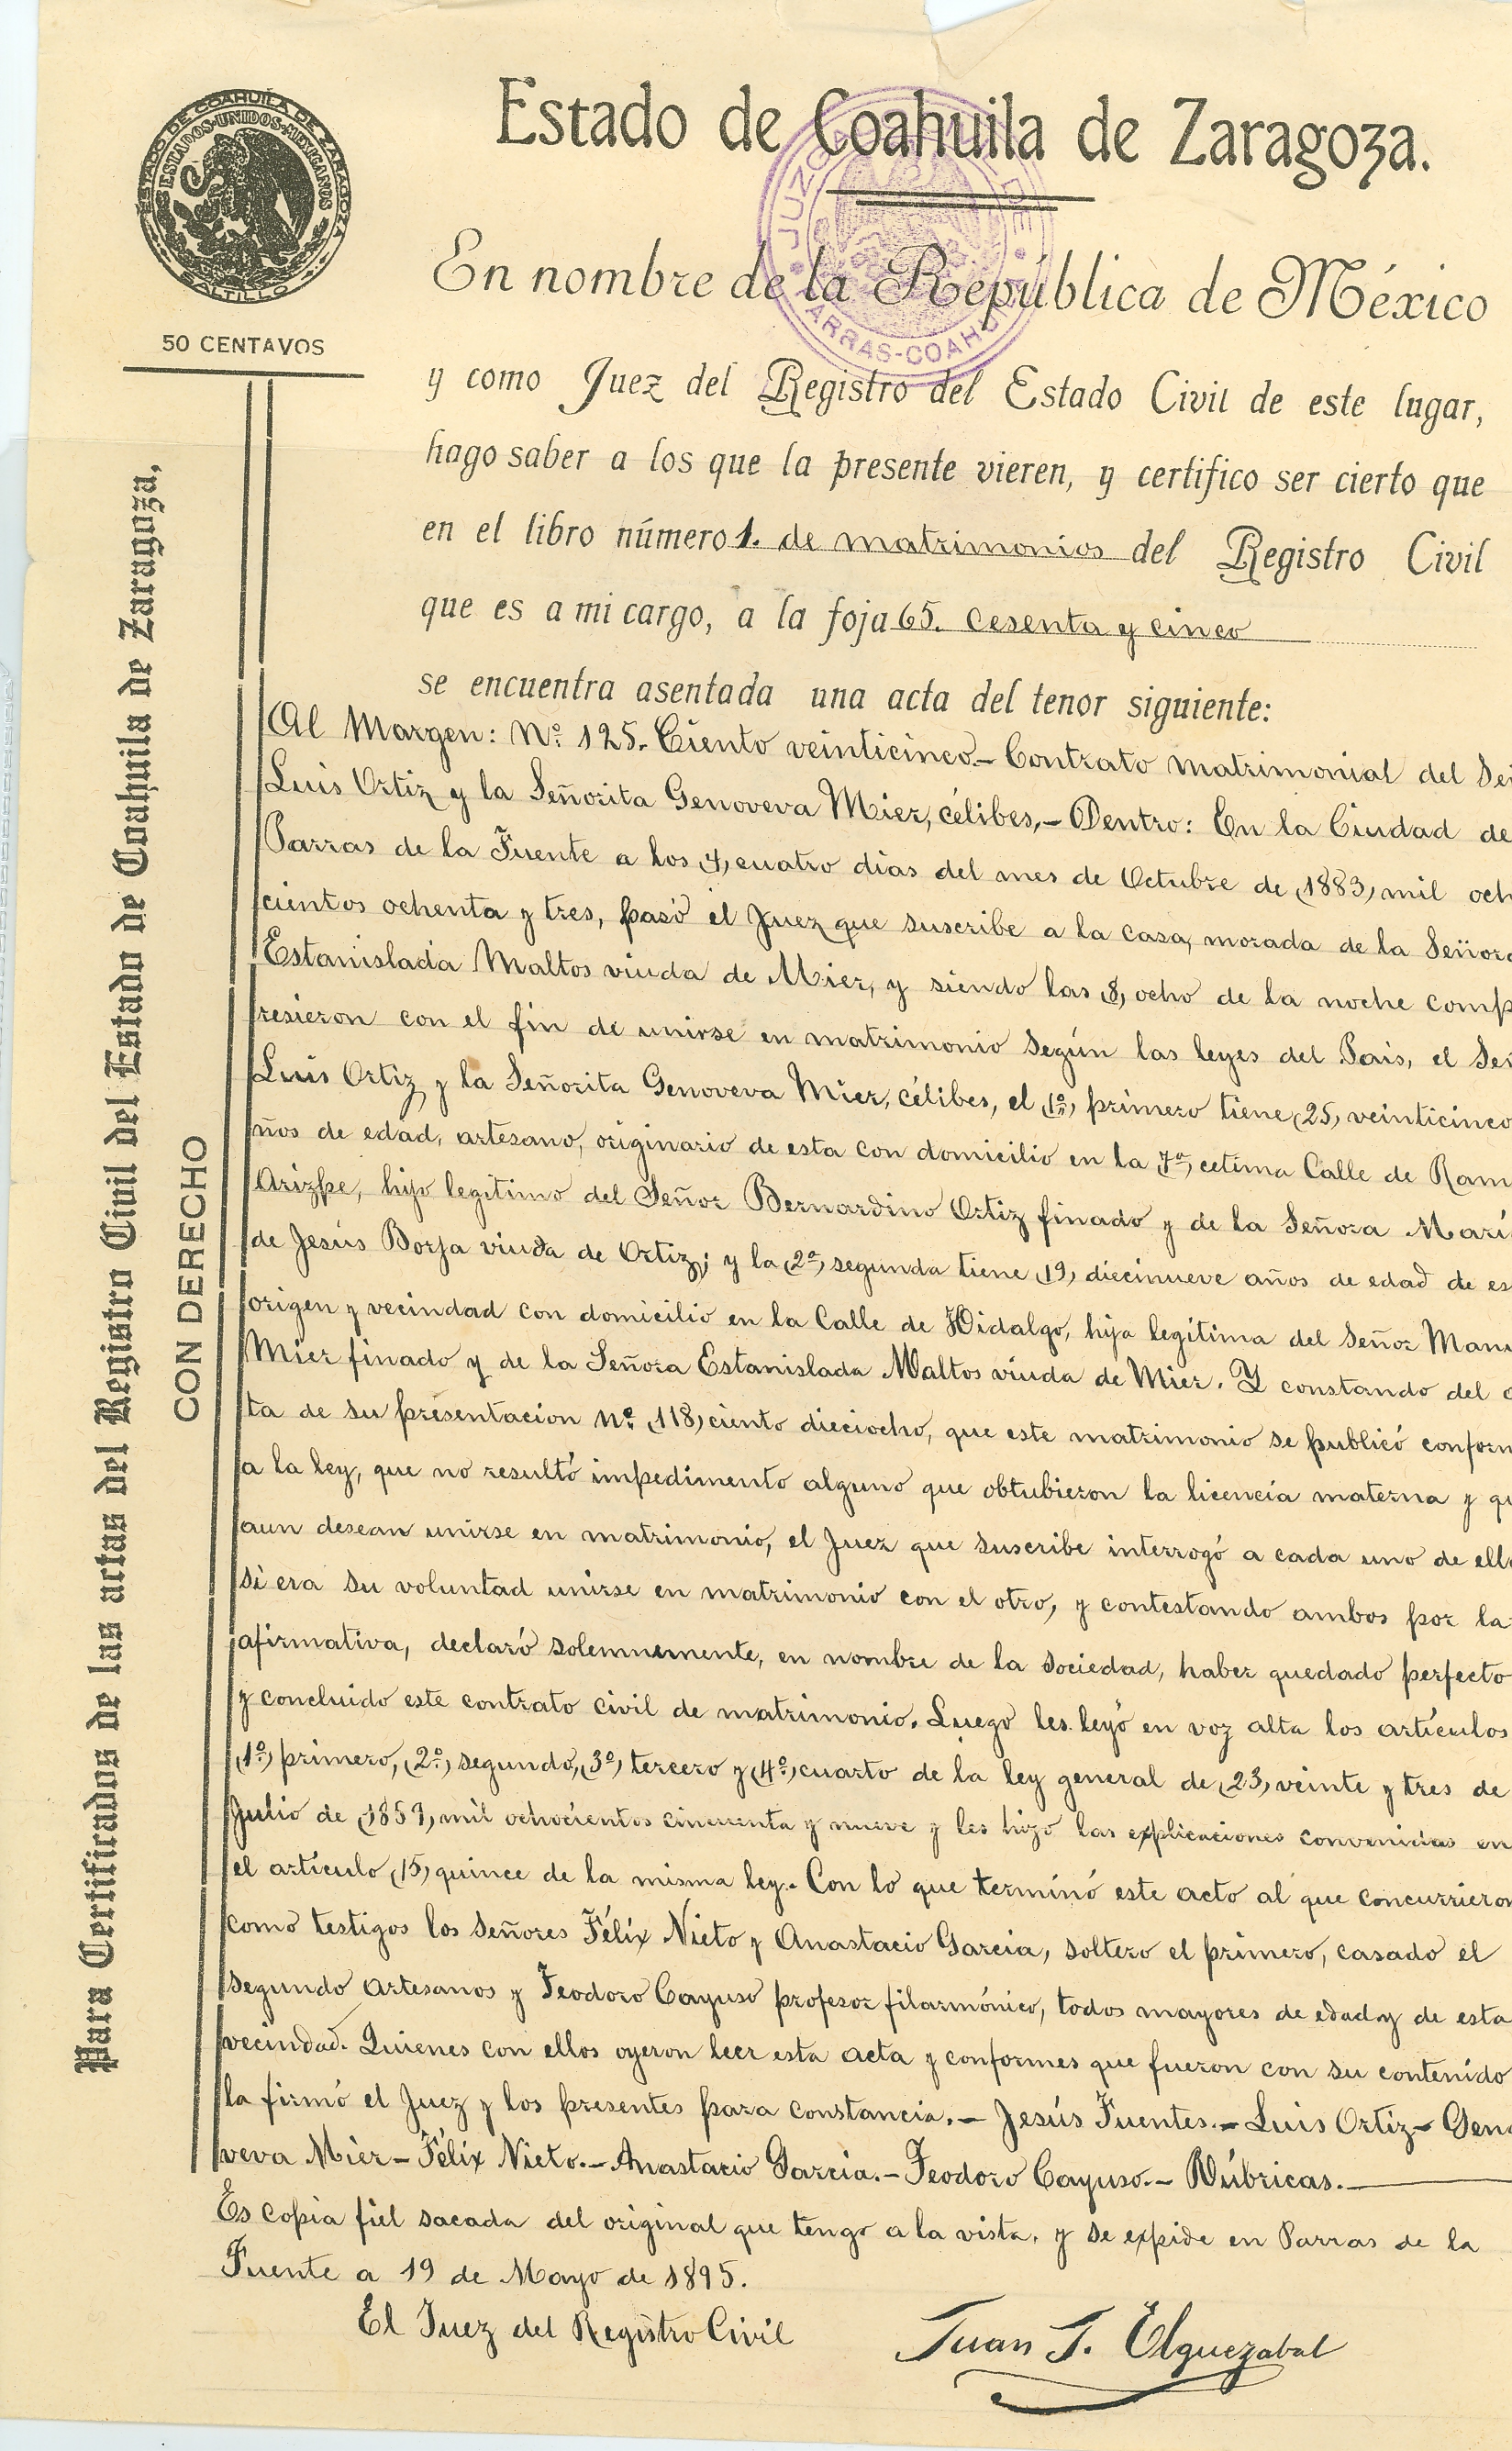 ESTADO DE COAHUILA DE ZARAGOZA
ESTADOS UNIDOS MEXICANOS
SALTILLO
50 CENTAVOS
Para Certificados de las actas del Registro Civil del Estado de Coahuila de Zaragoza,
CON DERECHO
Estado de Coahuila de Zaragoza.
PARRAS-COAHUILA
En nombre de la República de México
y como Juez del Registro del Estado Civil de este lugar,
hago saber a los que la presente vieren, y certifico ser cierto que
en el libro número 1. de matrimonios del Registro Civil
que es a mi cargo, a la foja 65. cesenta y cinco
se encuentra asentada una acta del tenor siguiente:
Al Margen: Nº 125. Ciento veinticinco.- Contrato matrimonial del Señ
Luis Ortiz y la Señorita Genoveva Mier, célibes,- Dentro: En la Ciudad de
Parras de la Fuente a los (4) cuatro días del mes de Octubre de (1883) mil och
cientos ochenta y tres, pasó el Juez que suscribe a la casa, morada de la Señora
Estanislada Maltos viuda de Mier, y siendo las (8) ocho de la noche comp
resieron con el fin de unirse en matrimonio según las leyes del Pais, el Señ
Luis Ortiz y la Señorita Genoveva Mier, célibes, el (1º) primero tiene (25) veinticinco
ños de edad, artesano, originario de esta con domicilio en la 7ª, cetima Calle de Ram
Arizpe, hijo legítimo del Señor Bernardino Ortiz finado y de la Señora Marí
de Jesús Borja viuda de Ortiz; y la (2ª) segunda tiene (19) diecinueve años de edad de es
origen y vecindad con domicilio en la Calle de Hidalgo, hija legítima del Señor Manu
Mier finado y de la Señora Estanislada Maltos viuda de Mier. Y constando del a
ta de su presentacion Nº (118) ciento dieciocho, que este matrimonio se publicó conform
a la ley, que no resultó impedimento alguno que obtubieron la licencia materna y qu
aun desean unirse en matrimonio, el Juez que suscribe interrogó a cada uno de ello
si era su voluntad unirse en matrimonio con el otro, y contestando ambos por la
afirmativa, declaró solemnemente, en nombre de la sociedad, haber quedado perfecto
y concluido este contrato civil de matrimonio. Luego les leyó en voz alta los artículos
(1º) primero, (2º) segundo, (3º) tercero y (4º) cuarto de la ley general de (23) veinte y tres de
Julio de (1859) mil ochocientos cincuenta y nueve y les hizo las explicaciones convenidas en
el artículo (15) quince de la misma ley.- Con lo que terminó este acto al que concurrieron
como testigos los señores Félix Nieto y Anastacio Garcia, soltero el primero, casado el
segundo artesanos y Teodoro Cayuso profesor filarmónico, todos mayores de edad y de esta
vecindad. Quienes con ellos oyeron leer esta acta y conformes que fueron con su contenido
la firmó el Juez y los presentes para constancia.- Jesús Fuentes.- Luis Ortiz- Geno
veva Mier- Félix Nieto.- Anastacio García.- Teodoro Cayuso.- Rúbricas.-
Es copia fiel sacada del original que tengo a la vista. y se expide en Parras de la
Fuente a 19 de Mayo de 1895.
El Juez del Registro Civil
Juan J. Elguezabal